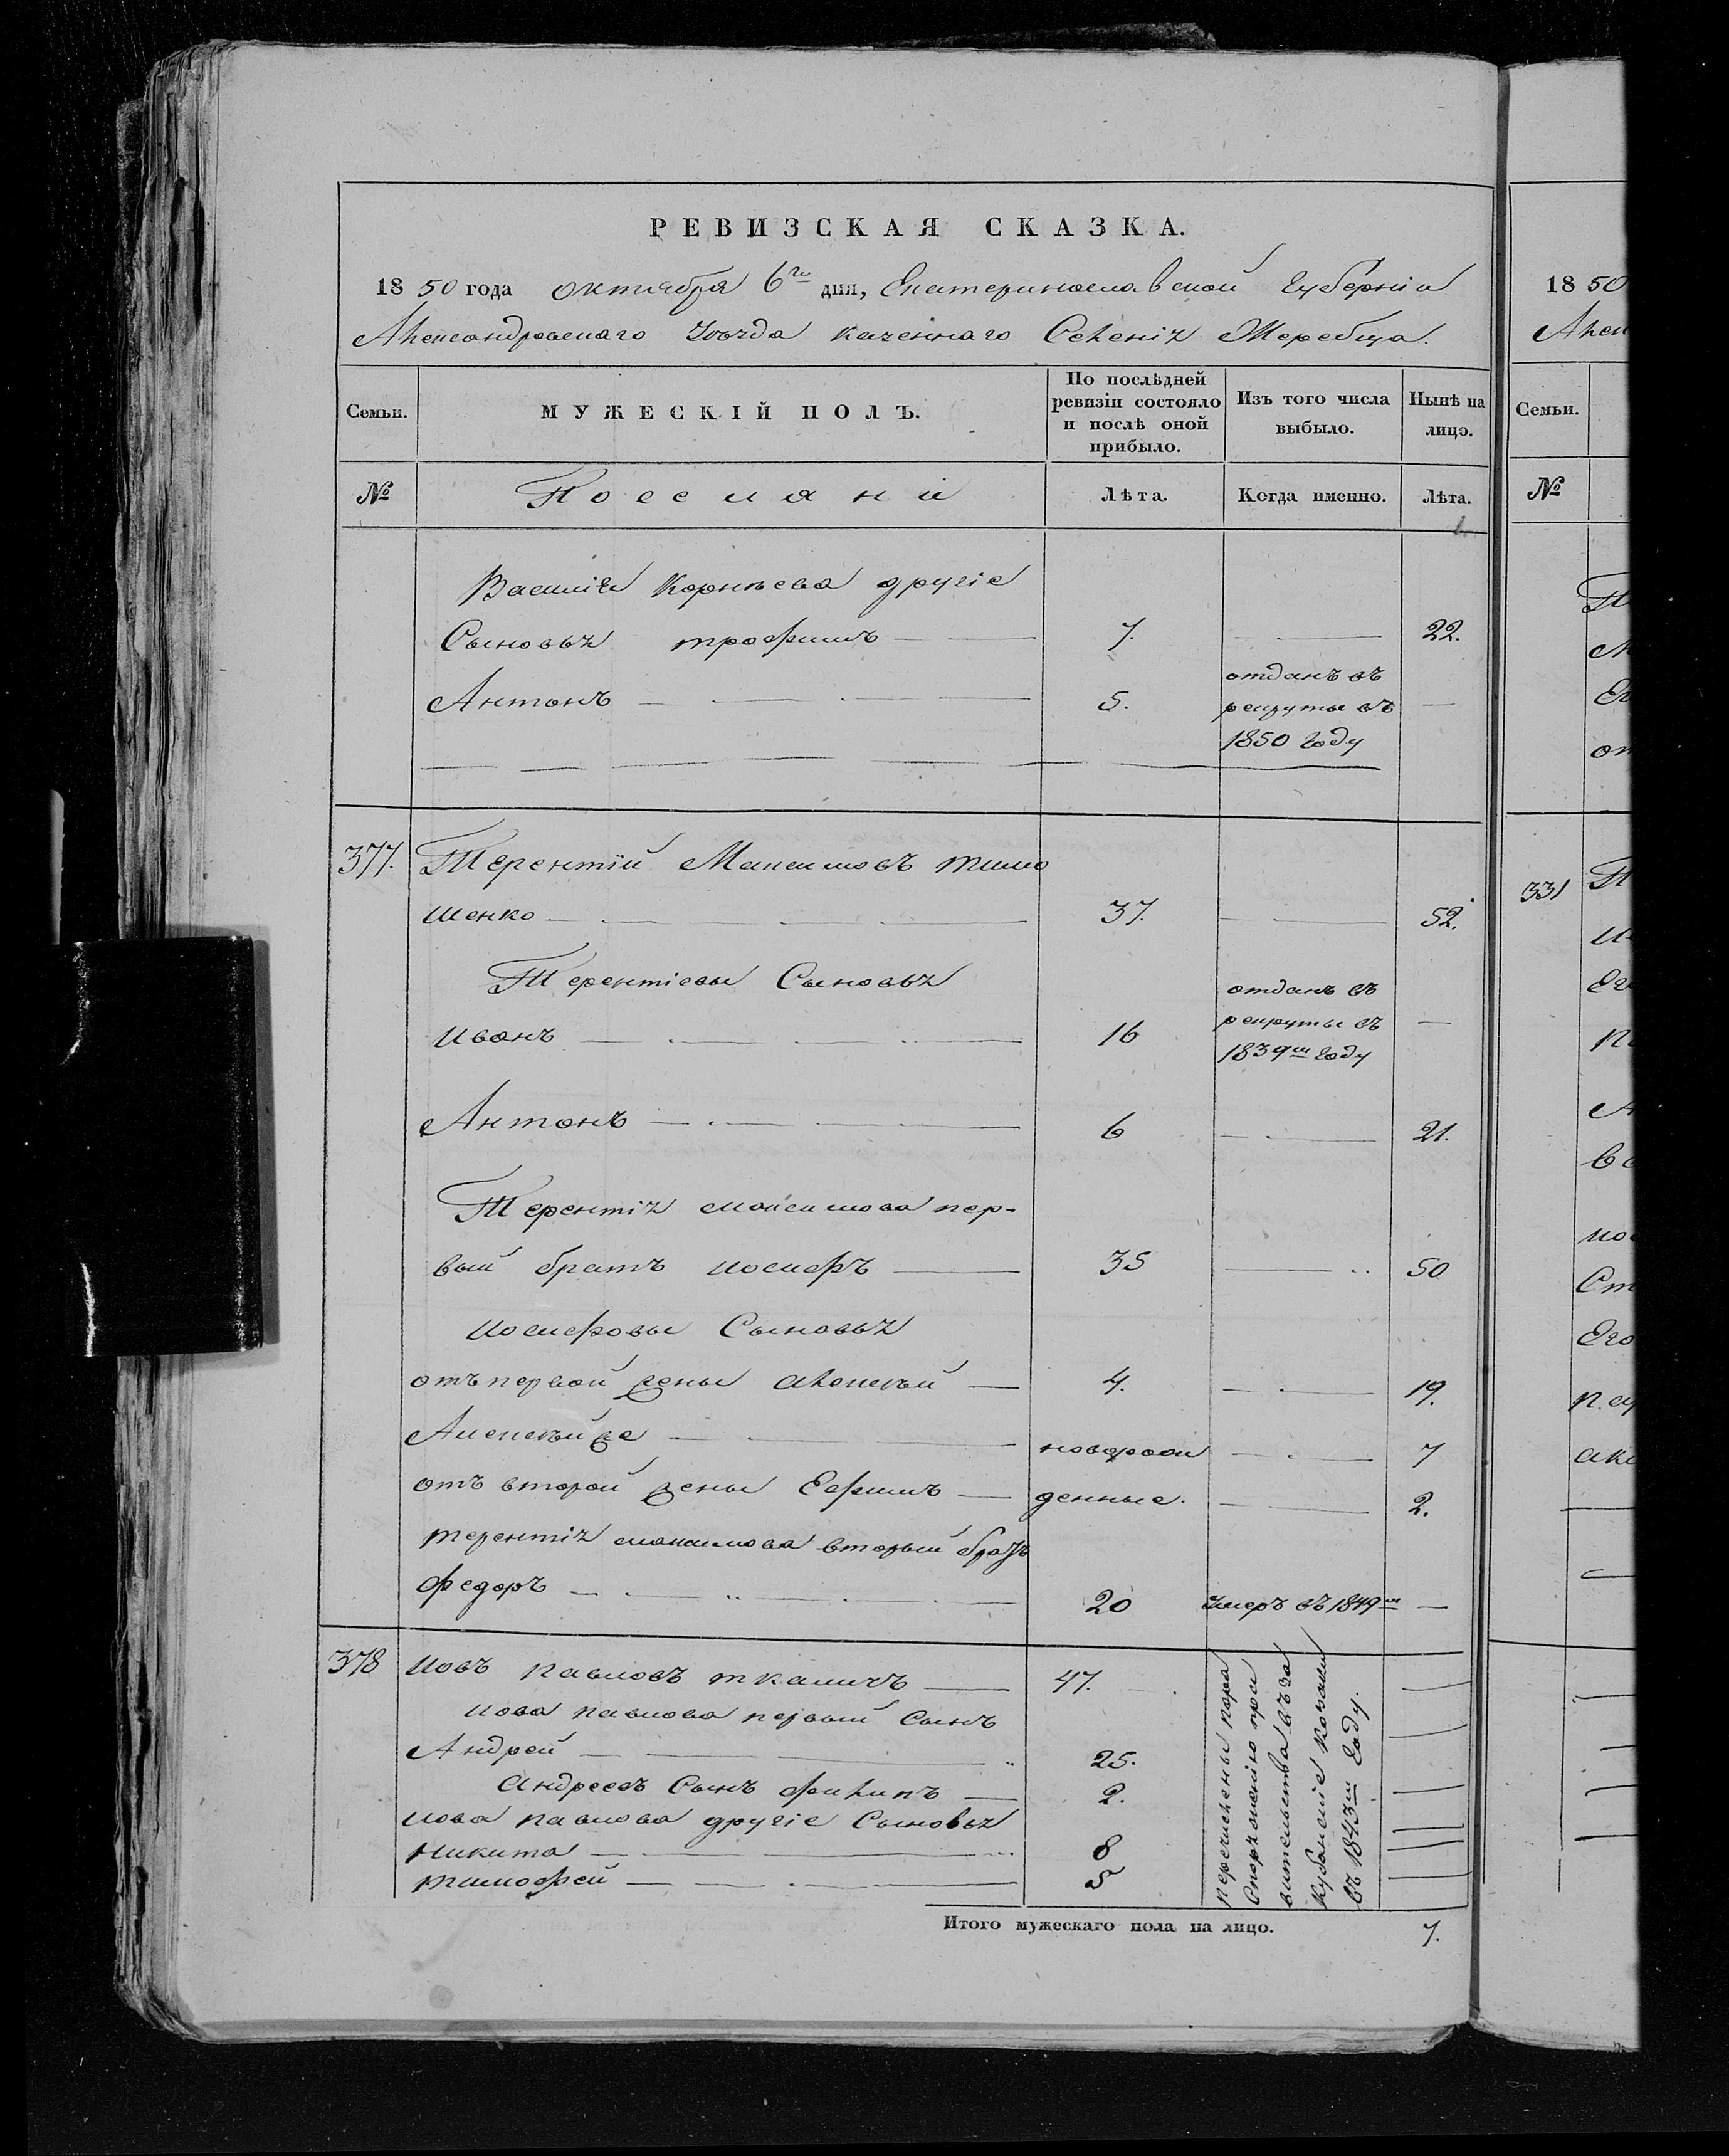 РЕВИЗСКАЯ СКАЗКА.
1850 года октября 6го дня, Екатеринославской Губерніи
Александровскаго Уѣзда казеннаго Селенія Жеребца.
Семьи. МУЖЕСКІЙ ПОЛЪ. По послѣдней ревизіи состояло и послѣ оной прибыло. Изъ того числа выбыло. Нынѣ на лицо.
№ Поселяни Лѣта. Когда именно. Лѣта.
Василія Корнѣева другіе
Сыновья трофимъ 7. 22.
Антонъ 5. отданъ въ рекруты въ 1850 Году
377. Терентій Максимовъ тимо
шенко 37. 52.
Терентіевы Сыновья
иванъ 16 отданъ въ рекруты въ 1839м Году
Антонъ 6 21.
Терентія максимова пер-
вый братъ иосифъ 35 50
иосифовы Сыновья
отъ первой жены алексѣй 4. 19.
Алексѣй же новорож 7
отъ второй жены Ефимъ денные. 2.
терентія максимова вторый братъ
федоръ 20 умеръ въ 1849м
378 иовъ павловъ ткаличъ 47.
иова павлова первый Сынъ
Андрей 25.
андреевъ Сынъ филипъ 2.
иова павлова другіе Сыновья
никита 8
тимофей 5
перечислены пора
споряженію пра
вительства въ за
кубанскіе козаки
въ 1843м Году.
Итого мужескаго пола на лицо. 7.
1850
Алек
Семьи.
№
331